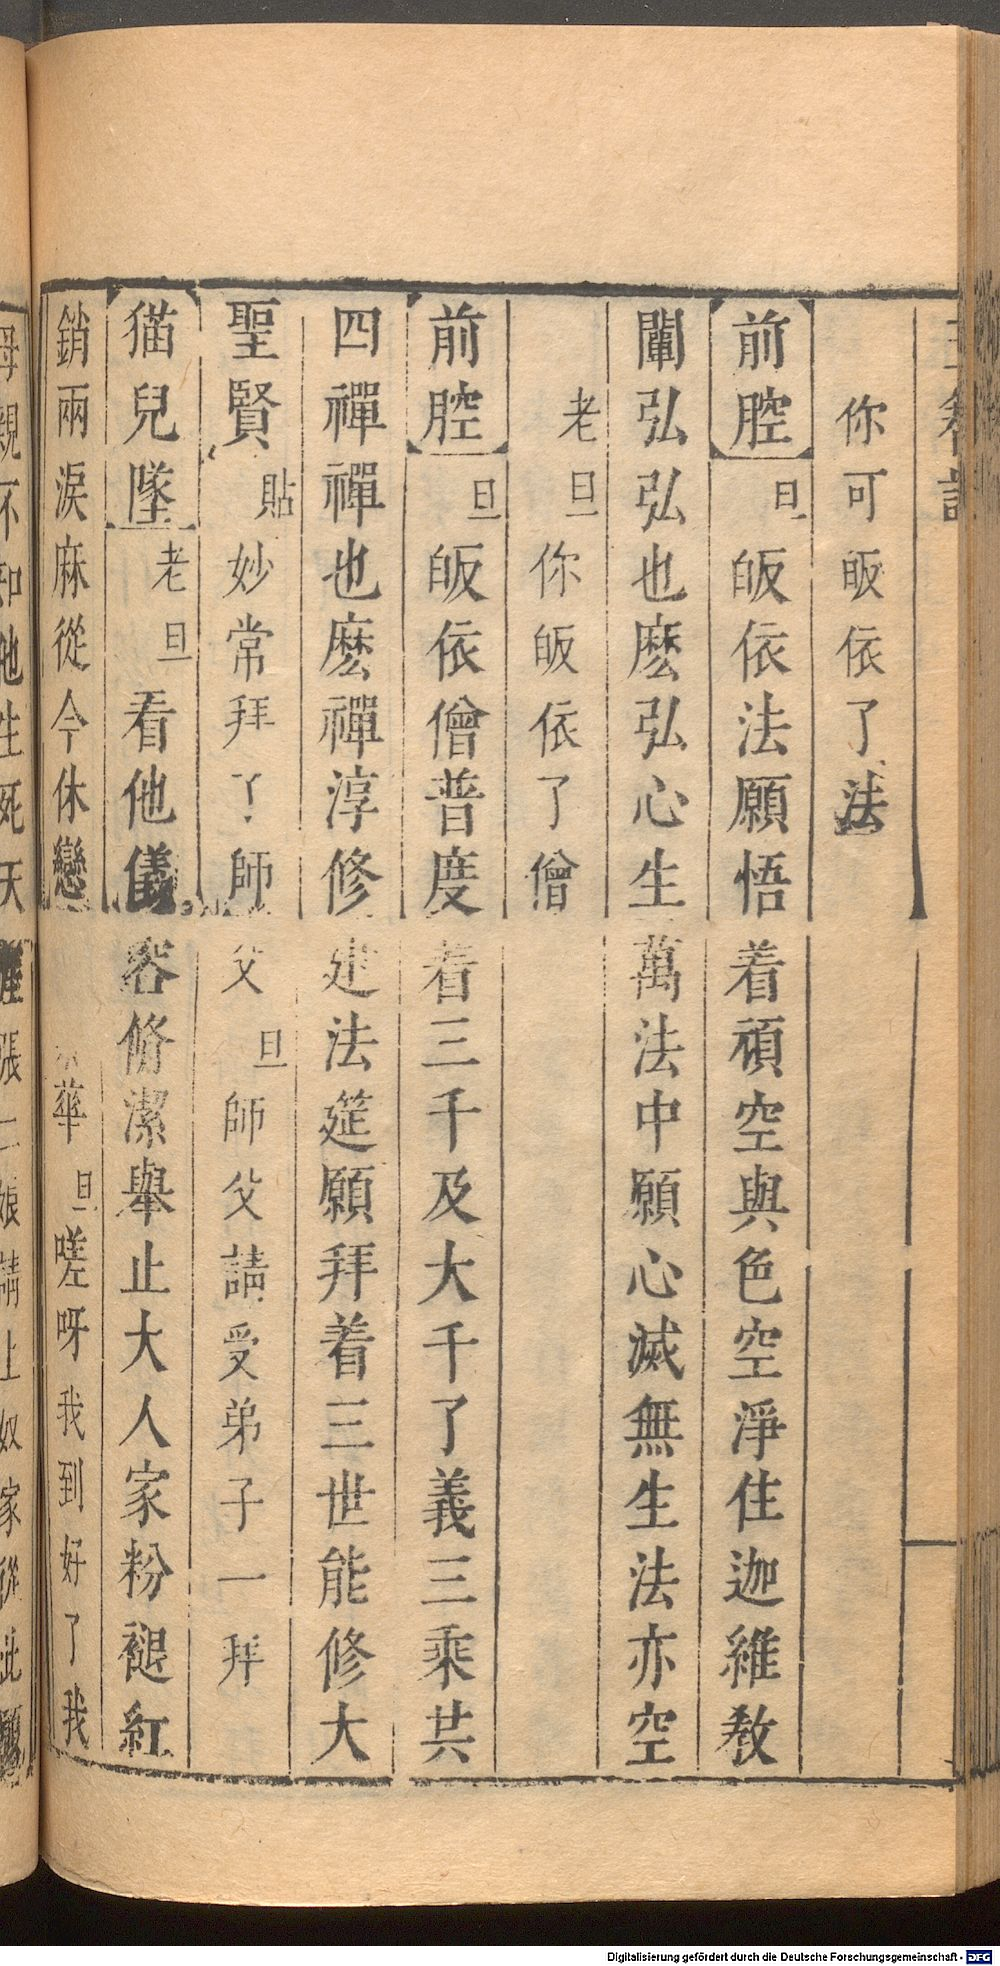 你可皈依了法
前腔 旦 皈依法願悟着頑空與色空淨住迦維敎
闡弘弘也麽弘心生萬法中願心滅無生法亦空
老旦 你皈依了僧
前腔 旦 皈依僧普度着三千及大千了義三乘共
四禪禪也麽禪淳修建法筵願拜着三世能修大
聖賢 貼 妙常拜了師父 旦 師父請受弟子一拜
猫兒墜 老旦 看他儀容脩潔舉止大人家粉褪紅
銷兩淚麻從今休戀華 旦 嗟呀我到好了我
母親不知他生死天張二娘請上奴家從此
Digitalisierung gefördert durch die Deutsche Forschungsgemeinschaft - DFG